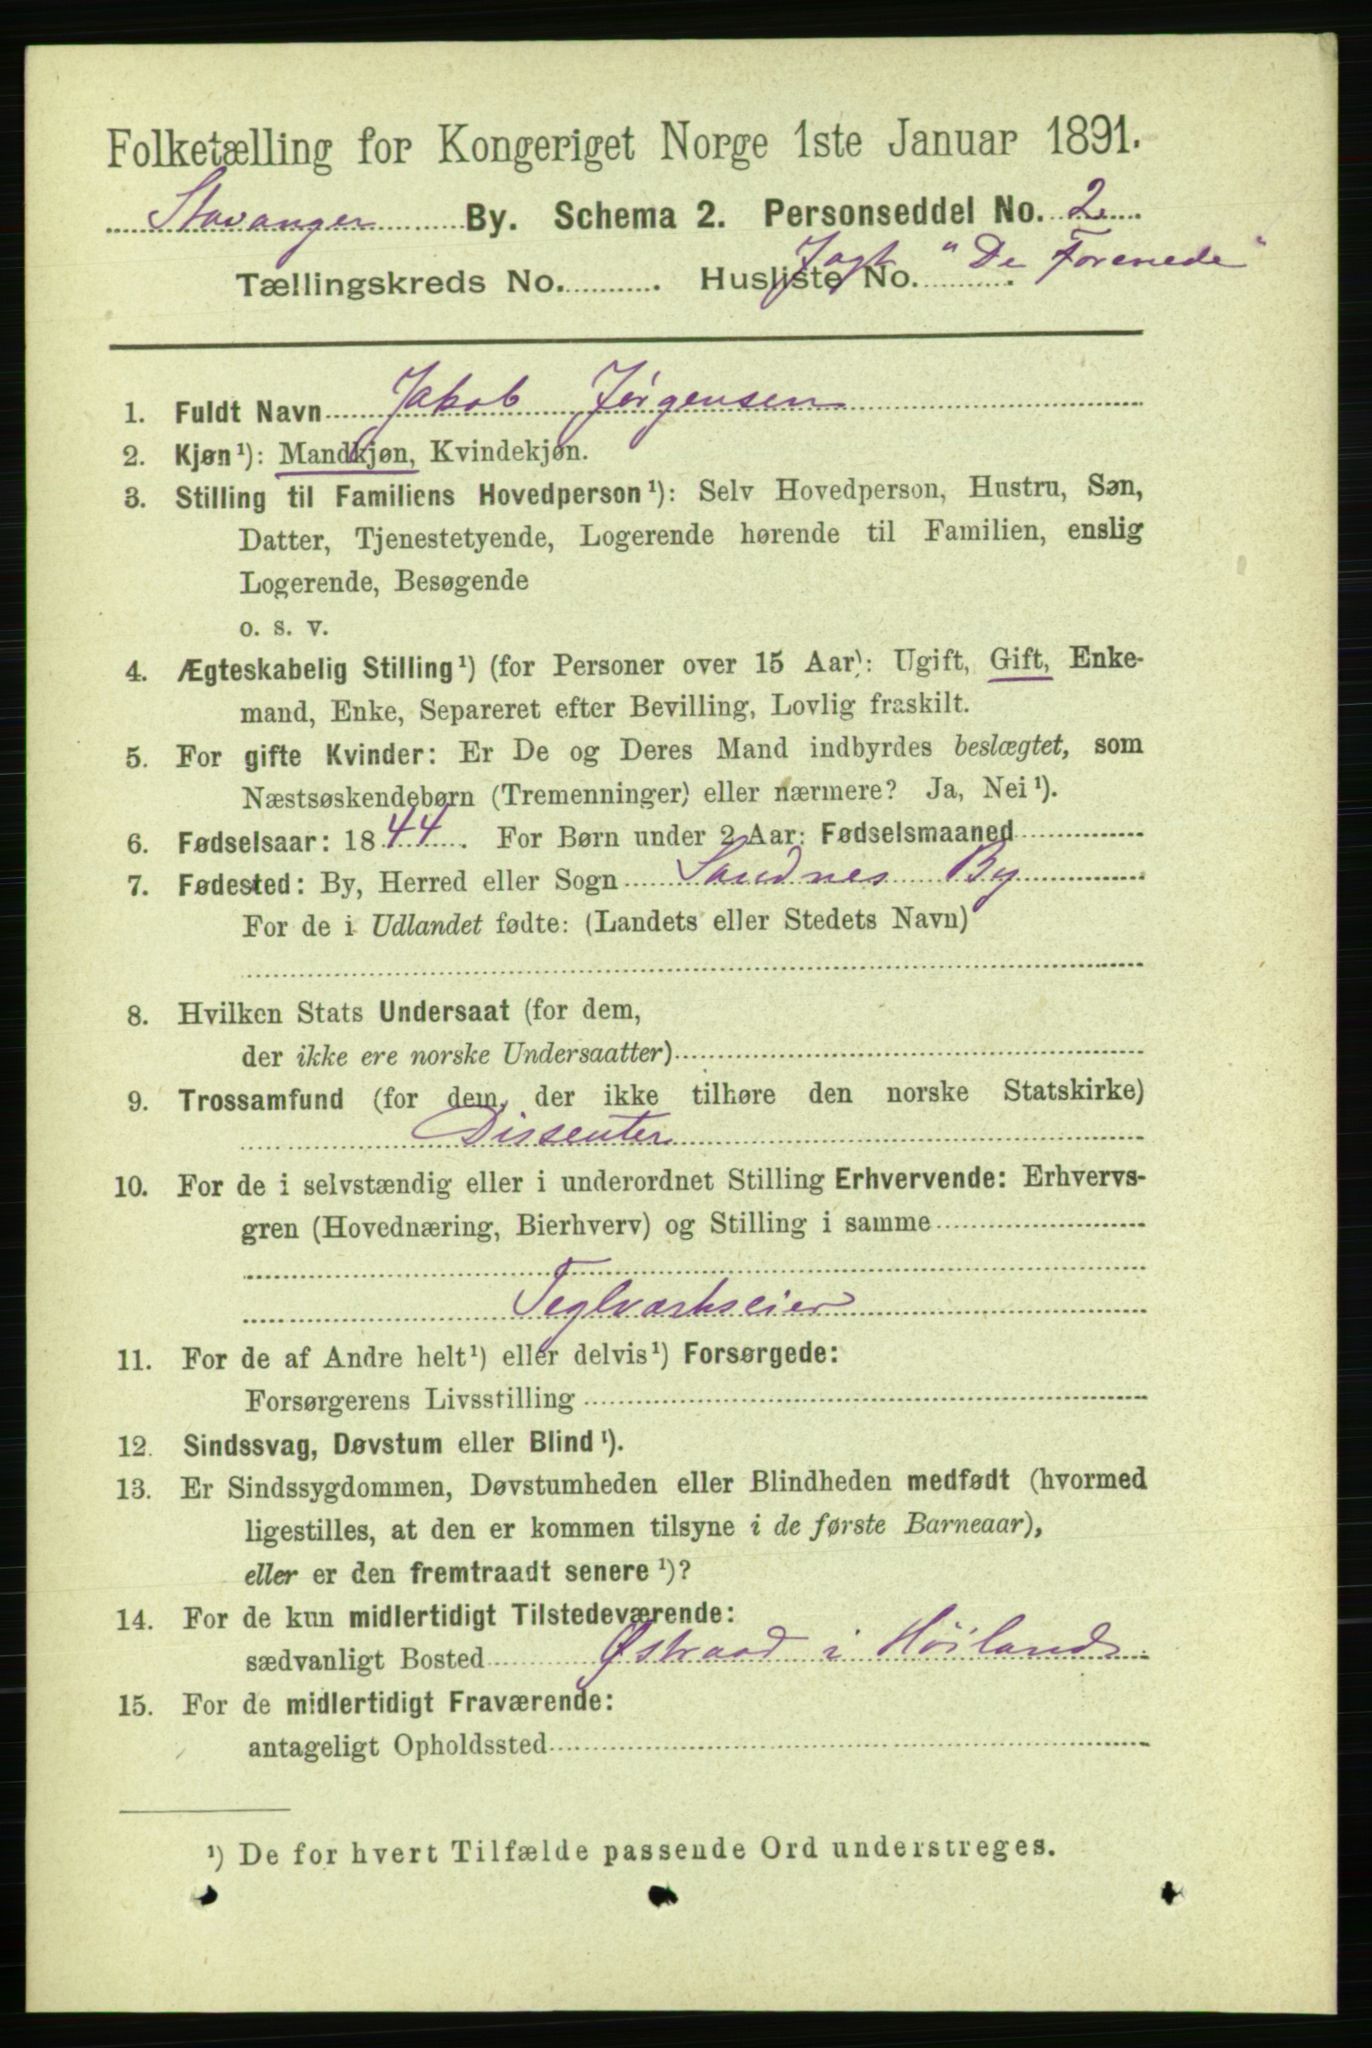 Folketælling for Kongeriget Norge 1ste Januar 1891.
Stavanger By. Schema 2. Personseddel No. 2.
Tællingskreds No. . Husliste No. . Jagt "De Forenede"
1. Fuldt Navn Jakob Jørgensen
2. Kjøn¹): Mandkjøn, Kvindekjøn.
3. Stilling til Familiens Hovedperson¹): Selv Hovedperson, Hustru, Søn,
Datter, Tjenestetyende, Logerende hørende til Familien, enslig
Logerende, Besøgende
o. s. v.
4. Ægteskabelig Stilling¹) (for Personer over 15 Aar): Ugift, Gift, Enke-
mand, Enke, Separeret efter Bevilling, Lovlig fraskilt.
5. For gifte Kvinder: Er De og Deres Mand indbyrdes beslægtet, som
Næstsøskendebørn (Tremenninger) eller nærmere? Ja, Nei¹).
6. Fødselsaar: 1844. For Børn under 2 Aar: Fødselsmaaned
7. Fødested: By, Herred eller Sogn Sandnes By
For de i Udlandet fødte: (Landets eller Stedets Navn)
8. Hvilken Stats Undersaat (for dem,
der ikke ere norske Undersaatter)
9. Trossamfund (for dem, der ikke tilhøre den norske Statskirke)
Dissenter
10. For de i selvstændig eller i underordnet Stilling Erhvervende: Erhvervs-
gren (Hovednæring, Bierhverv) og Stilling i samme
Teglværkseier
11. For de af Andre helt¹) eller delvis¹) Forsørgede:
Forsørgerens Livsstilling
12. Sindssvag, Døvstum eller Blind¹).
13. Er Sindssygdommen, Døvstumheden eller Blindheden medfødt (hvormed
ligestilles, at den er kommen tilsyne i de første Barneaar),
eller er den fremtraadt senere¹)?
14. For de kun midlertidigt Tilstedeværende:
sædvanligt Bosted Østraad i Høiland.
15. For de midlertidigt Fraværende:
antageligt Opholdssted
¹) De for hvert Tilfælde passende Ord understreges.